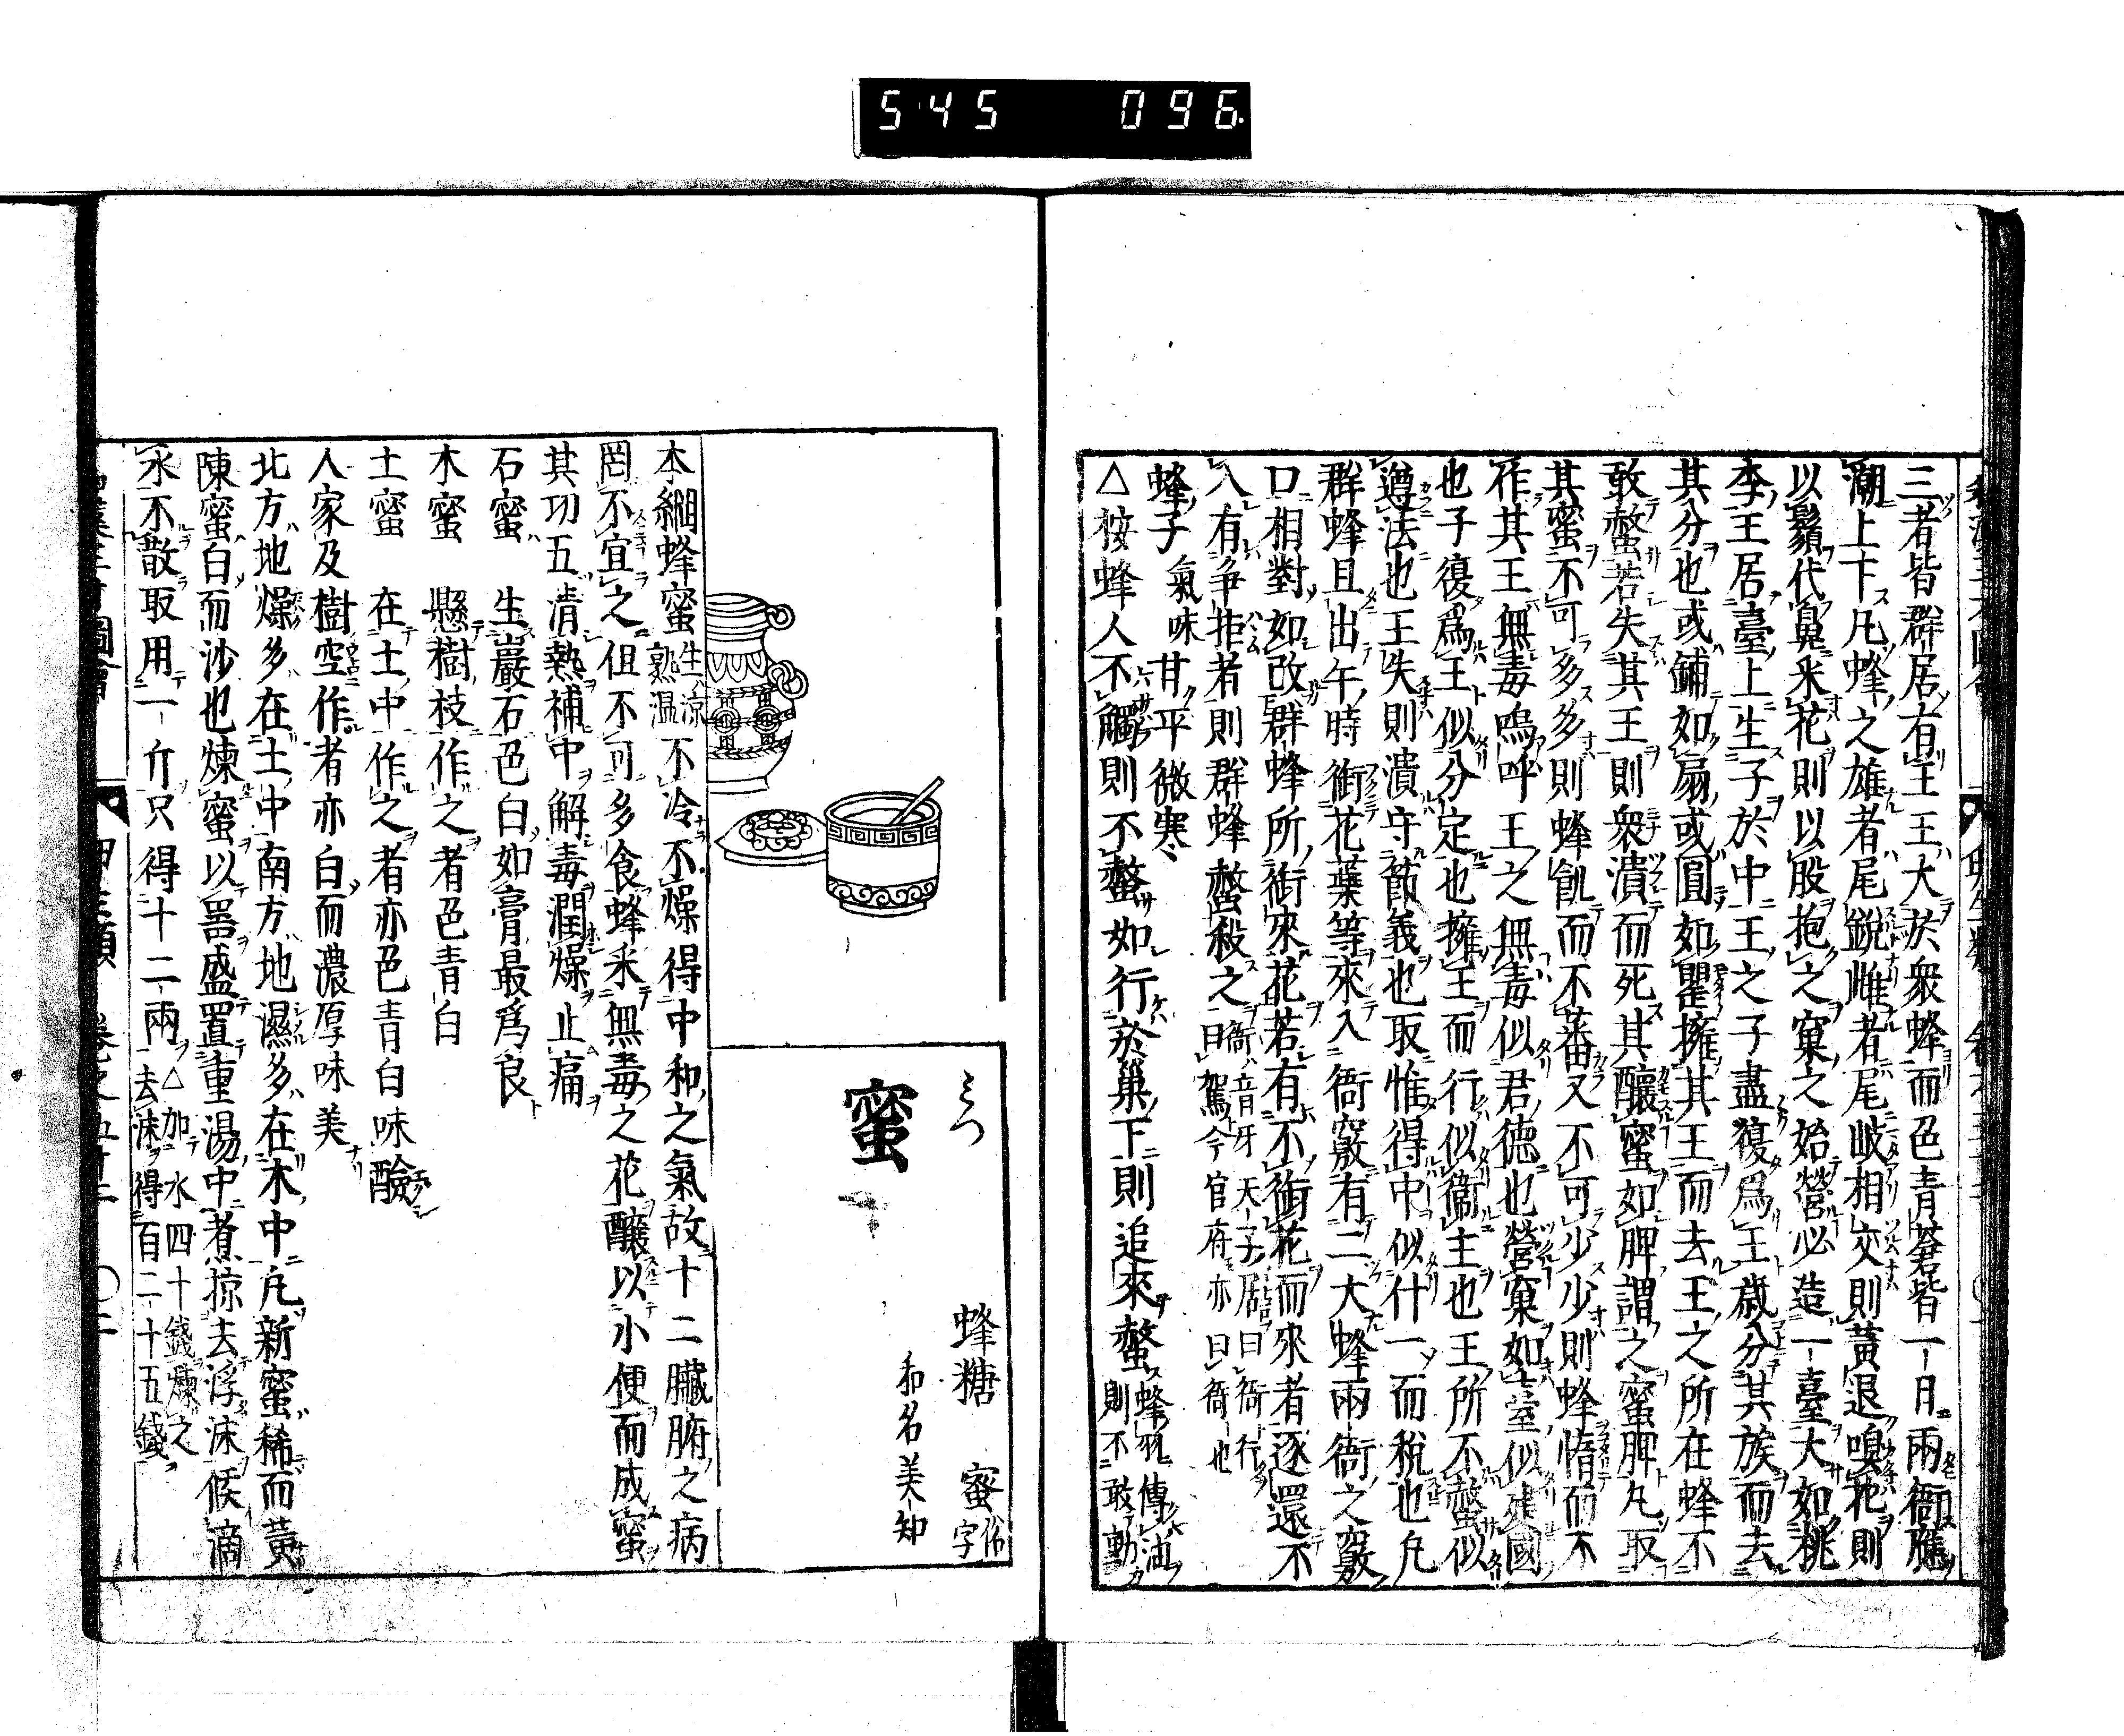 545 096
三者皆群居有王王大於衆蜂而色青蒼皆一日兩衙應
潮上下凡蜂之雄者尾銳雌者尾岐相交則黃退嗅花則
以鬚代鼻采花則以股抱之窠之始營必造一臺大如桃
李王居臺上生子於中王之子盡復爲王歳分其族而去
其分也或鋪如扇或圓如罌擁其王而去王之所在蜂不
敢螫若失其王則衆潰而死其釀蜜如脾謂之蜜脾凡取
其蜜不可多多則蜂飢而不蕃又不可少少則蜂惰而不
作其王無毒嗚呼王之無毒似君德也營窠如臺似建國
也子復爲王似分定也擁王而行似衞主也王所不螫似
遵法也王失則潰守節義也取惟得中似什一而稅也凡
群蜂且出午時銜花蘂等來入衙竅有二大蜂兩衙之竅
口相對如改群蜂所銜來花若有不銜花而來者逐還不
入有爭拒者則群蜂螫殺之衙音牙天子居曰衙行
曰駕今官府亦曰衙也
蜂子氣味甘平微寒
△按蜂人不觸則不螫如行於巢下則追來螫蜂翅傳油
則不敢動
みつ
蜜
蜂糖 蜜俗字
和名美知
本綱蜂蜜生凉熟温不冷不燥得中和之氣故十二臟腑之病
罔不宜之但不可多食蜂采無毒之花釀以小便而成蜜
其功五清熱補中解毒潤燥止痛
石蜜 生巖石色白如膏最爲良
木蜜 懸樹枝作之者色青白
土蜜 在土中作之者亦色青白味醶
人家及樹空作者亦白而濃厚味美
北方地燥多在土中南方地濕多在木中凡新蜜稀而黃
陳蜜白而沙也煉蜜以噐盛置重湯中煮掠去浮沫候滴
水不散取用一斤只得十二兩△加水四十錢煉之
去沫得百二十五錢